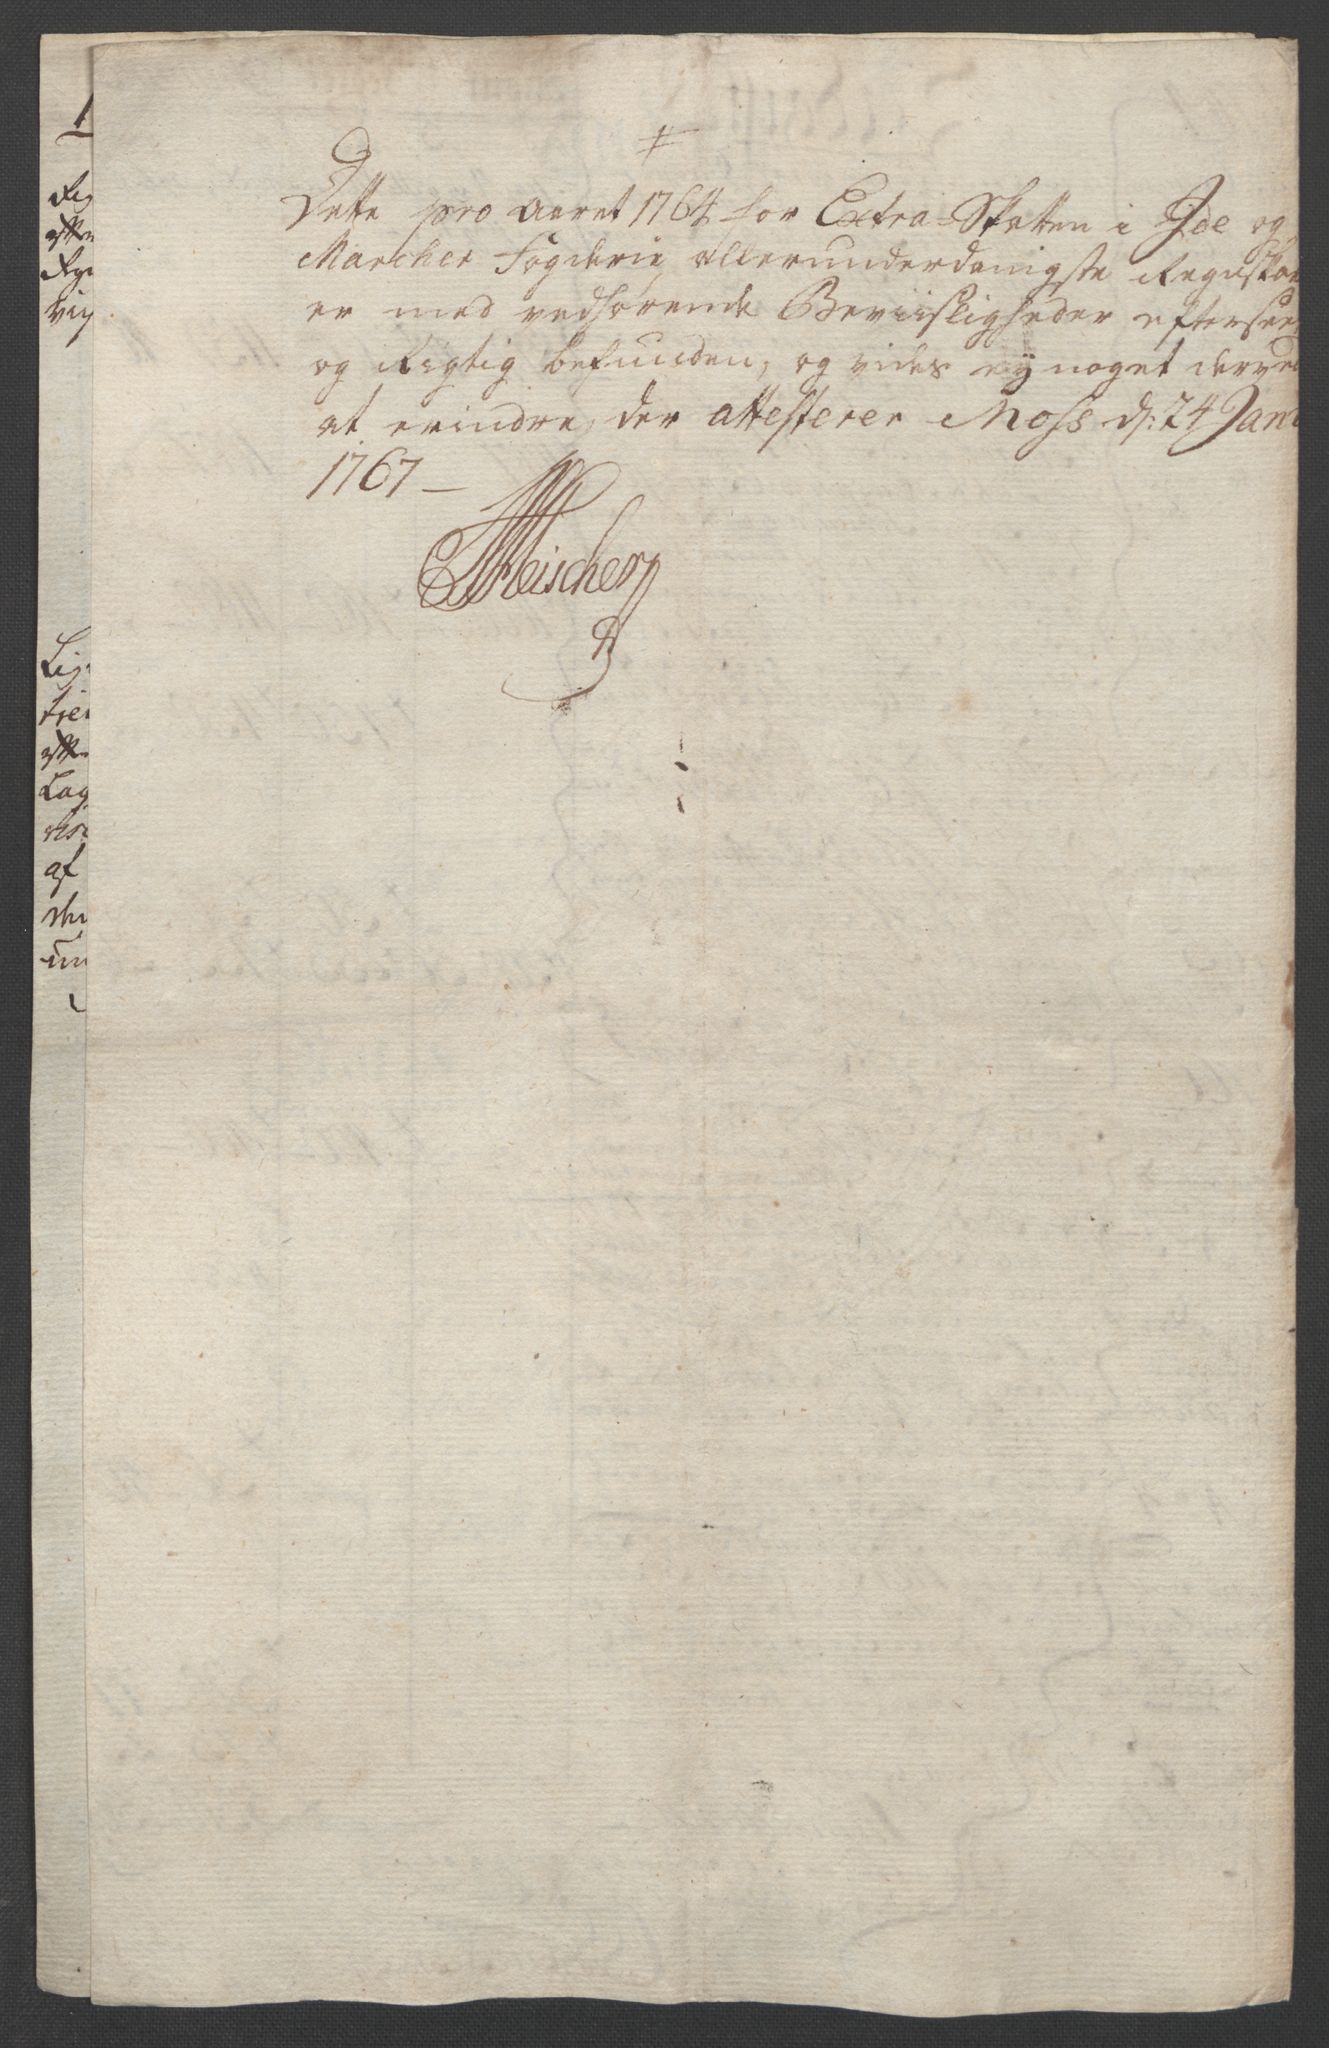 Dette pro Aaret 1764 for Extra-Skatten i Ide og
Marcker Fogderie allerunderdanigste Regnskab
er med vedhørende Beviisligheder efterseet
og Rigtig befunden, og vides ey noget derved
at erindre, der attesterer Moss d: 24 Janu
1767 —